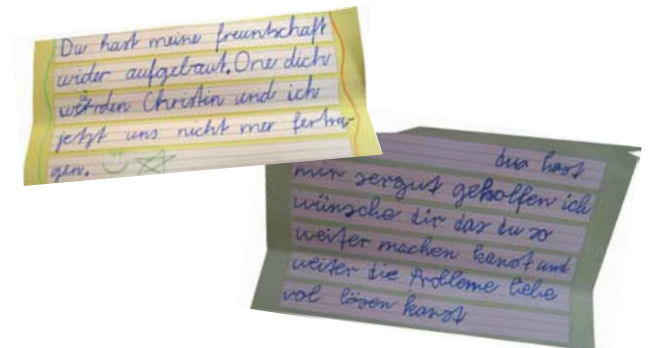 Du hast meine freuntschaft
wider aufgebaut. One dich
würden Christin und ich
jetzt uns nicht mer fertra-
gen.
dua hast
mir sergut geholfen ich
wünsche dir das du so
weiter machen kanst und
weiter die Probleme liebe
vol lösen kanst